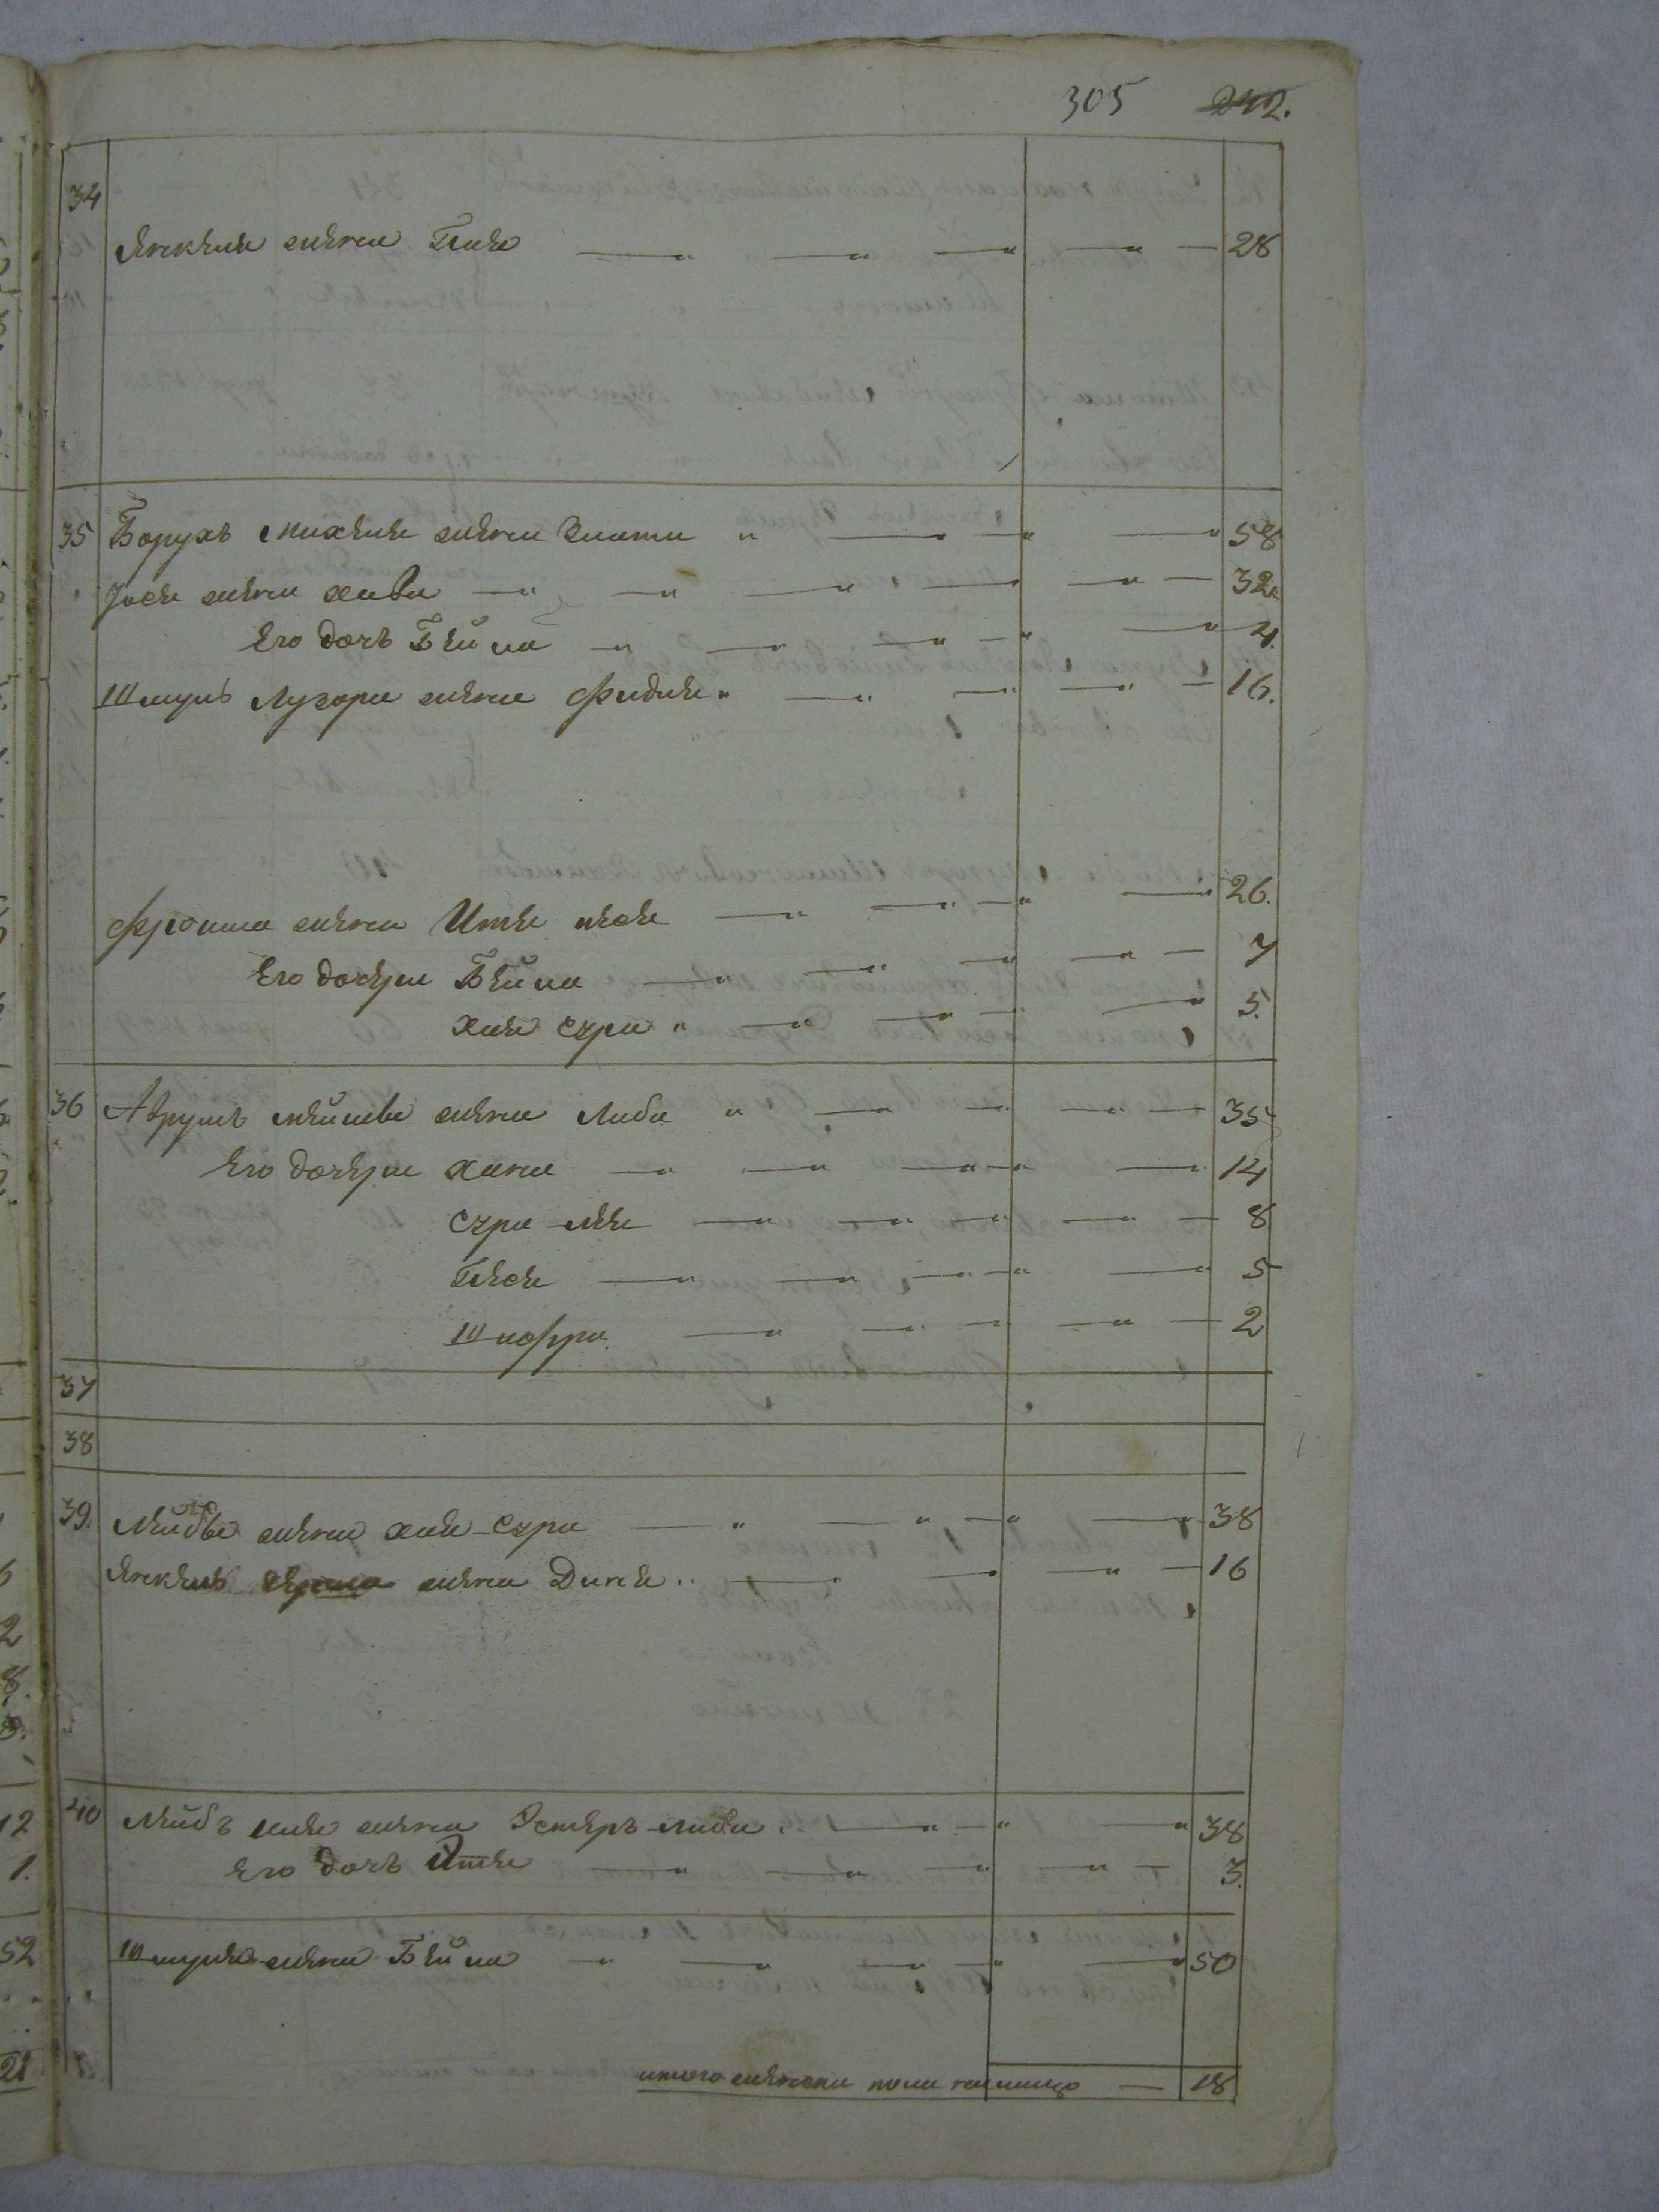 305 242.
34
Янкеля жена Гене 28
35 Борухъ Михеля жена Злата 58
Іося жена Хава 32
Его дочь Бейла 4.
Шмуль Лузора жена Фейдля 16.
Фроима жена Итке 26.
Его дочери Бейла 7
Хая Сура 5.
36 Аврумъ жена Либа 35
Его дочери Хана 14
Сура 8
Песя 5
Шифра 2
37
38
39. Лейбы жена Хая-Сура 38
Янкель жена Диня 16
40 Лейбъ жена Эстеръ-Либа 38
Его дочь Итке 3.
Шмуля жена Бейла 50
итого женска пола на лицо — 18